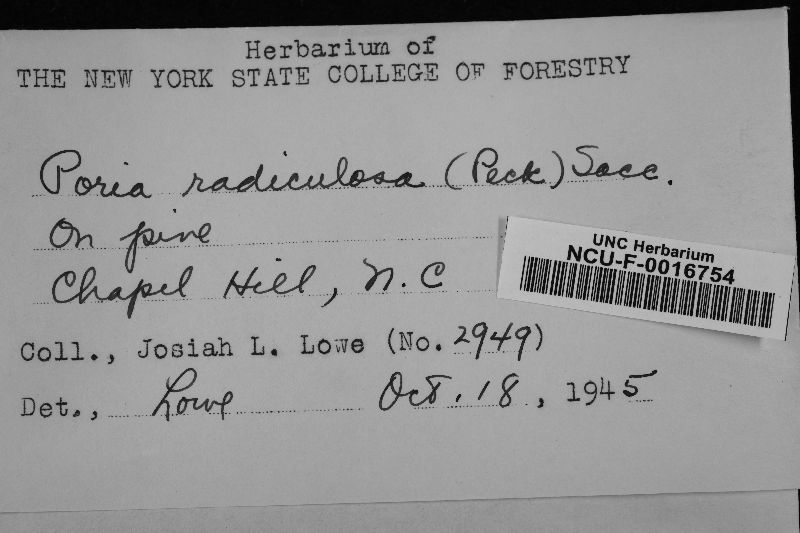 Herbarium of
THE NEW YORK STATE COLLEGE OF FORESTRY
Poria radiculosa (Peck) Sacc.
On pine
Chapel Hill, N.C
UNC Herbarium
NCU-F-0016754
Coll., Josiah L. Lowe (No. 2949)
Det., Lowe Oct. 18, 1945